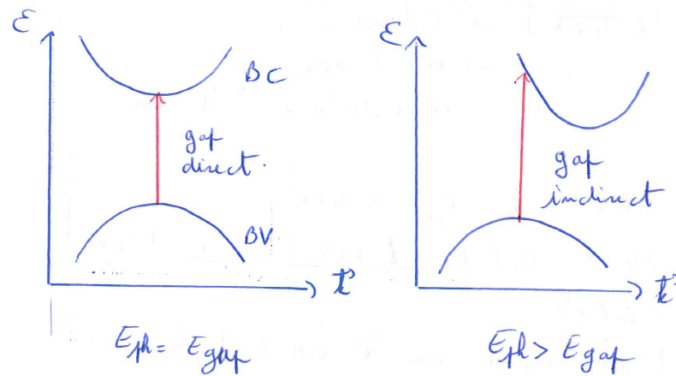 ε
BC
gap
direct.
BV
k⃗
E_ph = E_gap
ε
gap
indirect
k⃗
E_ph > E_gap